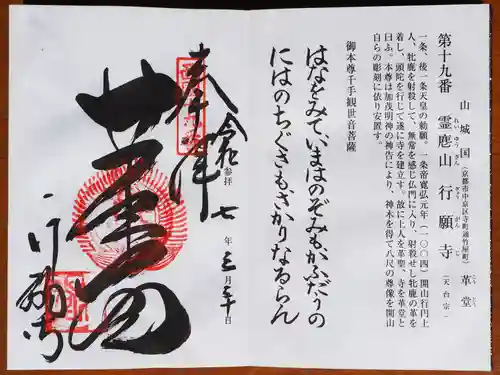 第十九番
山城国(京都市中京区寺町通竹屋町)
霊麀山 行願寺 革堂
れいゆうざん ぎょうがんじ こうどう
(天台宗)
一条、後一条天皇の勅願。一条帝寛弘元年(一〇〇四)開山行円上
人、牝鹿を射殺して、無常を感じ仏門に入り、射殺せし牝鹿の革を
着し、頭陀を行じて遂に寺を建立す。故に上人を革聖、寺を革堂と
曰ふ。本尊は加茂明神の神告により、神木を得て八尺の尊像を開山
自らの彫刻に依り安置す。
御本尊千手観世音菩薩
はなをみていまはのぞみもかふだうの
にはのちぐさもさかりなるらん
奉拝
令和七年三月三十日
参拝
革堂
行願寺